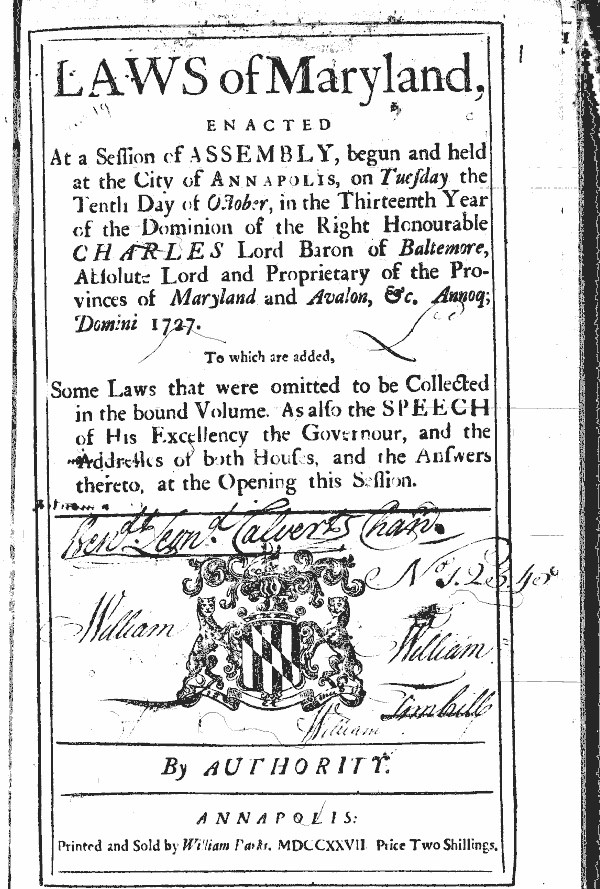 LAWS of Maryland,
ENACTED
At a Seſſion of ASSEMBLY, begun and held
at the City of ANNAPOLIS, on Tueſday the
Tenth Day of October, in the Thirteenth Year
of the Dominion of the Right Honourable
CHARLES Lord Baron of Baltemore,
Abſolute Lord and Proprietary of the Pro-
vinces of Maryland and Avalon, &c. Annoq;
Domini 1727.
To which are added,
Some Laws that were omitted to be Collected
in the bound Volume. As alſo the SPEECH
of His Excellency the Governour, and the
Addreſſes of both Houſes, and the Anſwers
thereto, at the Opening this Seſſion.
Calverts
William
William
William
By AUTHORITY.
ANNAPOLIS:
Printed and Sold by William Parks. MDCCXXVII Price Two Shillings.